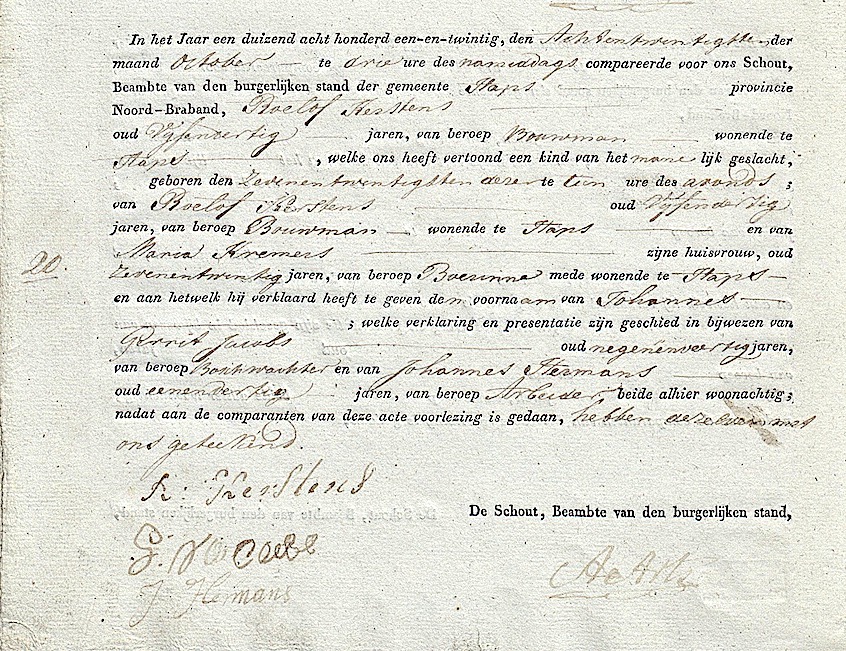 In het Jaar een duizend acht honderd een-en-twintig, den Achtentwintigsten der
maand October te drie ure des nameddags compareerde voor ons Schout,
Beambte van den burgerlijken stand der gemeente Haps provincie
Noord-Braband, Roelof Kerstens
oud Vyfendertig jaren, van beroep Bouwman wonende te
Haps, welke ons heeft vertoond een kind van het mannelijk geslacht,
geboren den Zevenentwintigsten dezer te tien ure des avonds;
van Roelof Kerstens oud Vyfendertig
jaren, van beroep Bouwman wonende te Haps en van
Maria Kremers zijne huisvrouw, oud
20. Zevenentwintig jaren, van beroep Boerinne mede wonende te Haps
en aan hetwelk hij verklaard heeft te geven den voornaam van Johannes
; welke verklaring en presentatie zijn geschied in bijwezen van
Gerrit Jacobs oud negenenveertig jaren,
van beroep Boschwachter en van Johannes Hermans
oud eenendertig jaren, van beroep Arbeider, beide alhier woonachtig;
nadat aan de comparanten van deze acte voorlezing is gedaan, hebben dezelven met
ons geteekend.
R: Kerstens
De Schout, Beambte van den burgerlijken stand,
G.
J Hermans